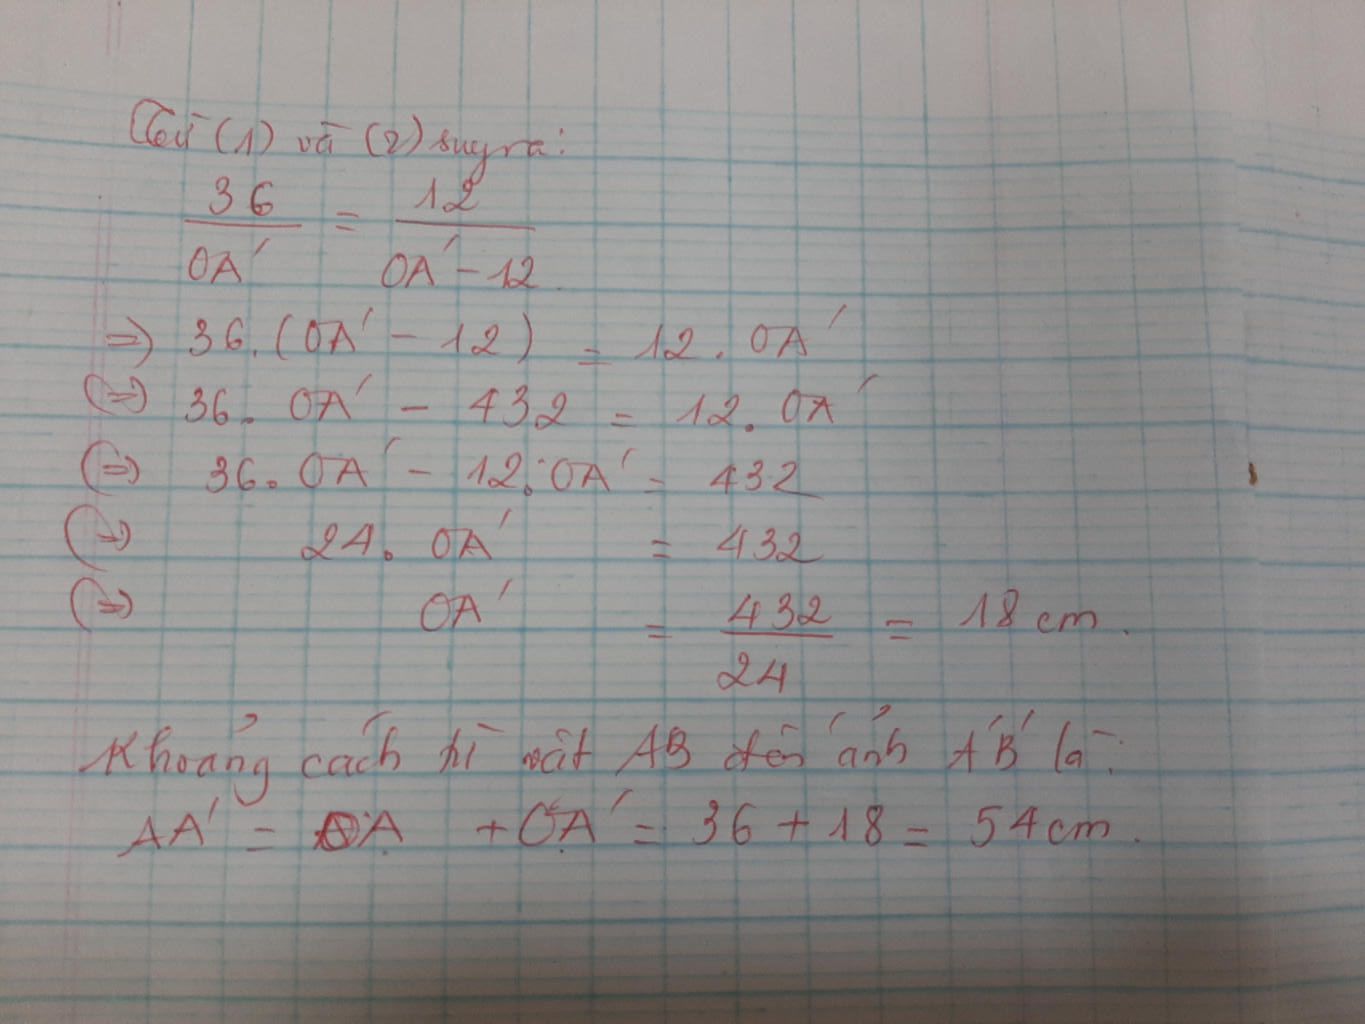 Từ (1) và (2) suy ra:
36/OA' = 12/OA' - 12
=> 36.(OA' - 12) = 12.OA'
(=>) 36.OA' - 432 = 12.OA'
(=>) 36.OA' - 12.OA' = 432
(=>) 24.OA' = 432
(=>) OA' = 432/24 = 18 cm.
Khoảng cách từ vật AB đến ảnh A'B' là:
AA' = OA + OA' = 36 + 18 = 54 cm.